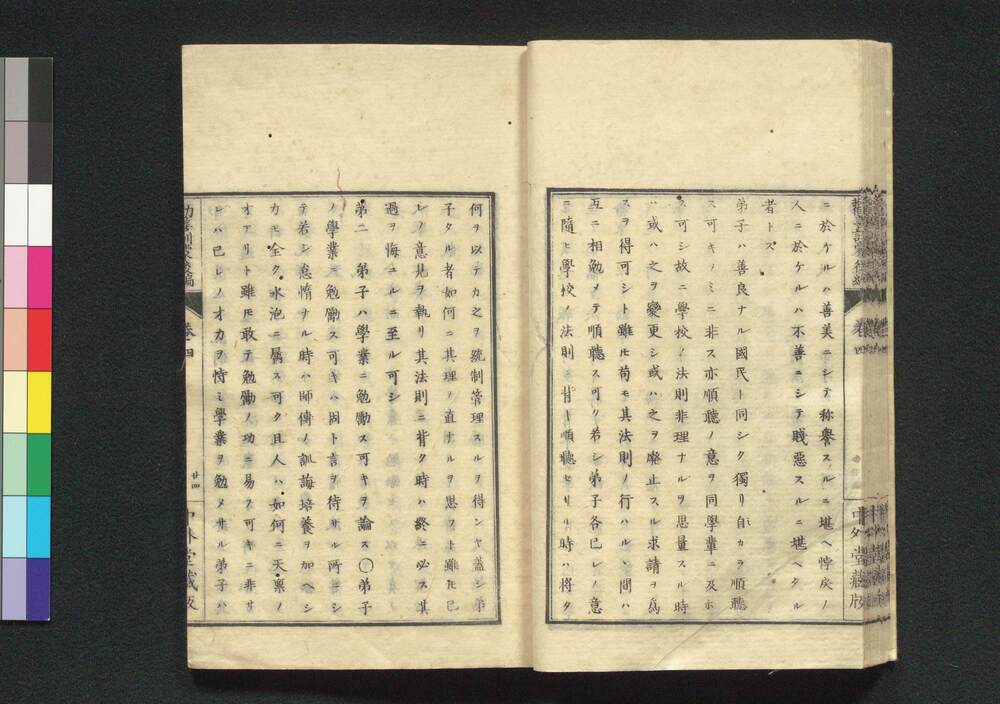 ニ於ケルハ善美ニシテ称誉スルニ堪ヘ悖戻ノ
人ニ於ケルハ不善ニシテ賤惡スルニ堪ヘタル
者トス
弟子ハ善良ナル國民ト同シク獨リ自カラ順聽
ス可キノミニ非ス亦順聽ノ意ヲ同學輩ニ及ホ
ス可シ故ニ學校ノ法則非理ナルヲ思量スル時
ハ或ハ之ヲ變更シ或ハ之ヲ廢止スル求請ヲ爲
スヲ得可シト雖𪜈苟モ其法則ノ行ハルヽ間ハ
互ニ相勉メテ順聽ス可ク若シ弟子各已レノ意
ニ隨ヒ學校ノ法則ニ背キ順聽セサル時ハ將タ
中外堂藏版
何ヲ以テカ之ヲ統制管理スルヲ得ンヤ蓋シ弟
子タル者如何ニ其理ノ直ナルヲ思フト雖𪜈已
レノ意見ヲ執リ其法則ニ背ク時ハ終ニ必ス其
過ヲ悔ユルニ至ル可シ
第二 弟子ハ學業ニ勉勵ス可キヲ論ス○弟子
ノ學業ニ勉勵ス可キハ固ト言ヲ待サル所ニシ
テ若シ怠惰ナル時ハ師傅ノ訓誨培養ヲ加ヘシ
カモ全ク水泡ニ属ス可ク且人ハ如何ニ天稟ノ
オアリト雖モ敢テ勉勵ノ功ニ易フ可キニ非サ
レハ已レノオカヲ恃ミ學業ヲ勉メサル弟子ハ
卷四
廿四